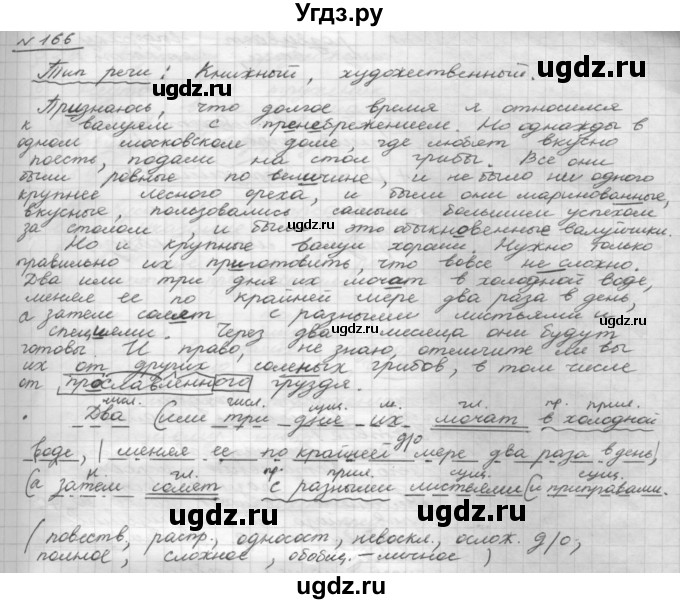 Угдз.ру
№ 166
Тип речи: Книжный, художественный.
Признаюсь, что долгое время я относился
к валуям с пренебрежением. Но однажды в
одном московском доме, где любят вкусно
поесть, подали на стол грибы. Все они
были ровные по величине, и не было ни одного
крупнее лесного ореха, и были они маринованные,
вкусные, пользовались самым большим успехом
за столом, и были это обыкновенные валуйчики.
Но и крупные валуи хороши. Нужно только
правильно их приготовить, что вовсе не сложно.
Два или три дня их мочат в холодной воде,
меняя ее по крайней мере два раза в день,
а затем солят с разными листьями и
специями. Через два месяца они будут
готовы. И право, не знаю, отличите ли вы
их от других соленых грибов, в том числе
от прославленного груздя.
числ. числ. сущ. м. гл. пр. прил.
Два (или три дня их мочат в холодной
воде, | меняя ее по крайней мере два раза в день, |
д/о
н. гл. пр. прил. сущ. сущ.
(а затем солят с разными листьями (и приправами.
(повеств., распр., односост., невоскл., ослож. д/о,
полное, сложное, обобщ.-личное)
ugdz.ru
ugdz.ru
ugdz.ru
ugdz.ru
ugdz.ru
ugdz.ru
ugdz.ru
ugdz.ru
ugdz.ru
ugdz.ru
ugdz.ru
ugdz.ru
ugdz.ru